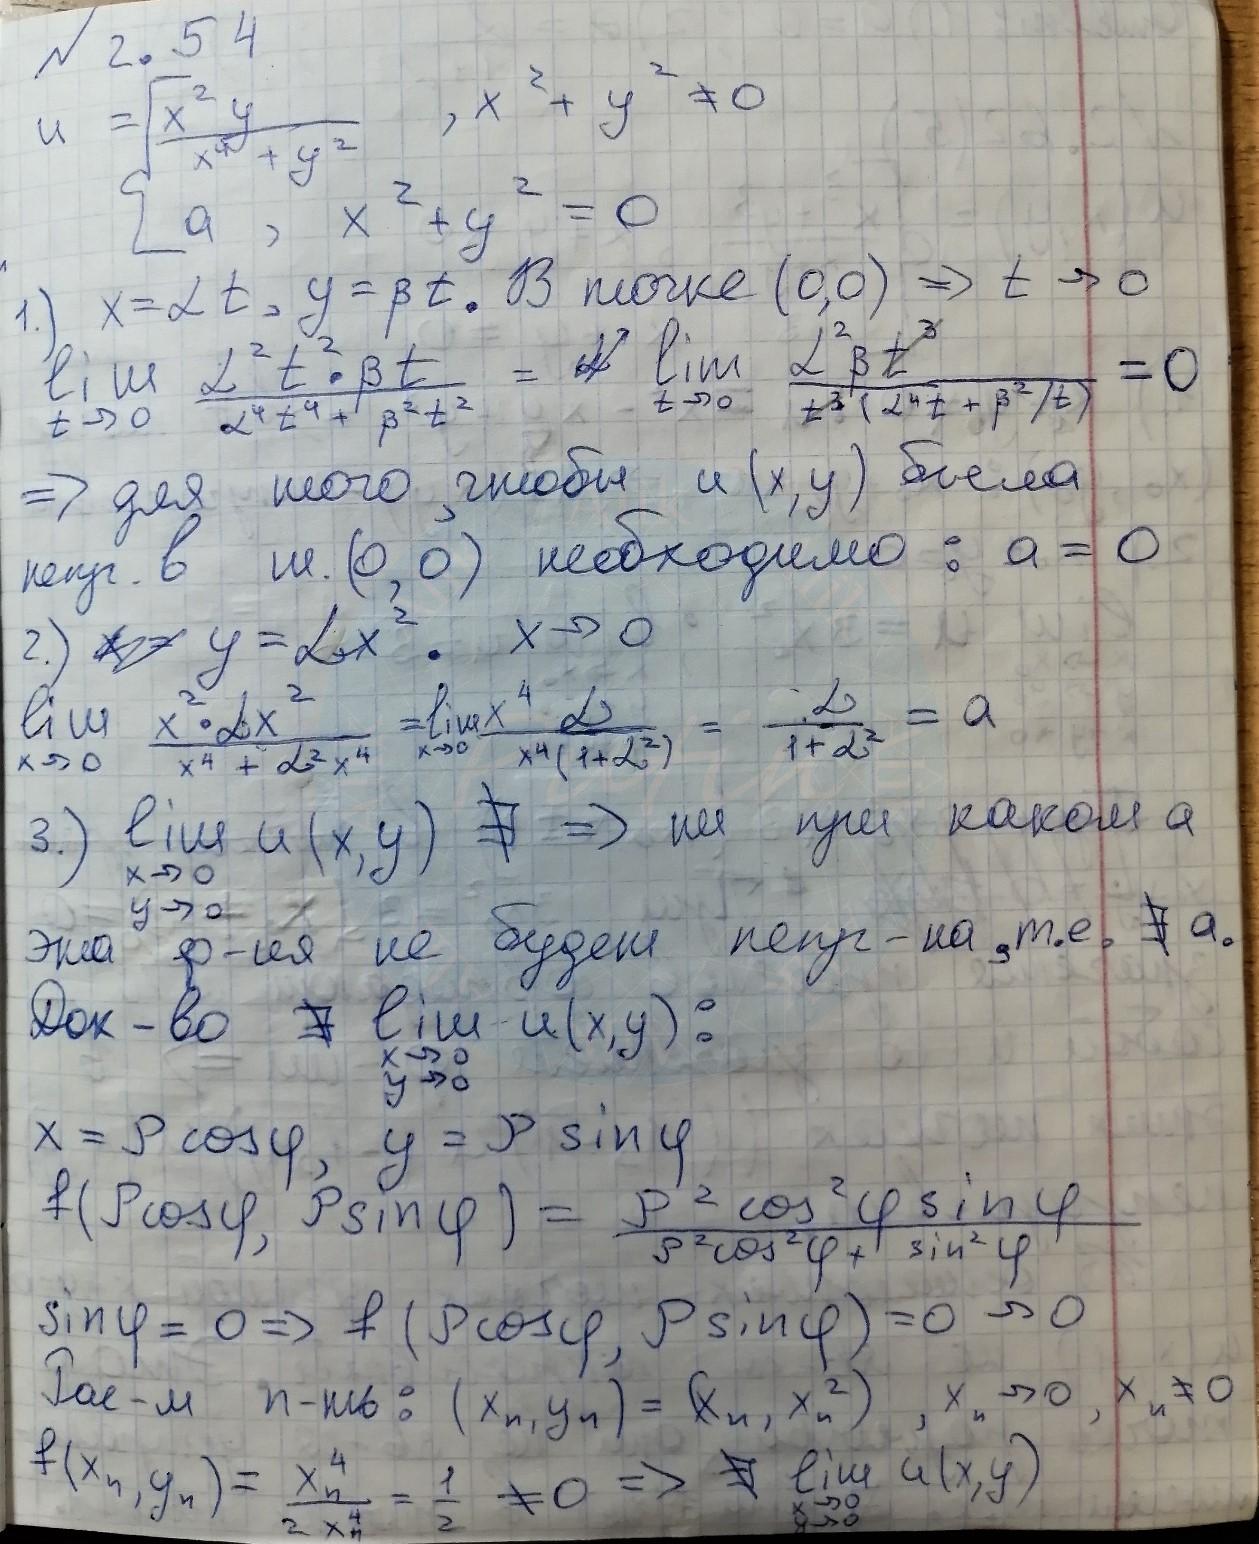 № 2.54
u = { x² y / (x⁴ + y²) , x² + y² ≠ 0
a , x² + y² = 0
1.) x = αt, y = βt. В точке (0,0) => t → 0
lim t→0 α²t²·βt / (α⁴t⁴ + β²t²) = lim t→0 α²βt³ / (t³(α⁴t + β²/t)) = 0
=> для того, чтобы u(x,y) была
непр. в т. (0,0) необходимо : a = 0
2.) y = αx². x → 0
lim x→0 x²·αx² / (x⁴ + α²x⁴) = lim x→0 x⁴ α / (x⁴(1+α²)) = α / (1+α²) = a
3.) lim x→0 y→0 u(x,y) ∄ => ни при каком a
эта ф-ия не будет непр-на, т.е. ∄ a.
Док-во ∄ lim x→0 y→0 u(x,y) :
x = ρ cosφ, y = ρ sinφ
f(ρcosφ, ρsinφ) = ρ² cos²φ sinφ / (ρ²cos²φ + sin²φ)
sinφ = 0 => f(ρcosφ, ρsinφ) = 0 → 0
Рас-м п-ть : (xₙ, yₙ) = (xₙ, xₙ²) , xₙ → 0 , xₙ ≠ 0
f(xₙ, yₙ) = xₙ⁴ / 2xₙ⁴ = 1/2 ≠ 0 => ∄ lim x→0 y→0 u(x,y)